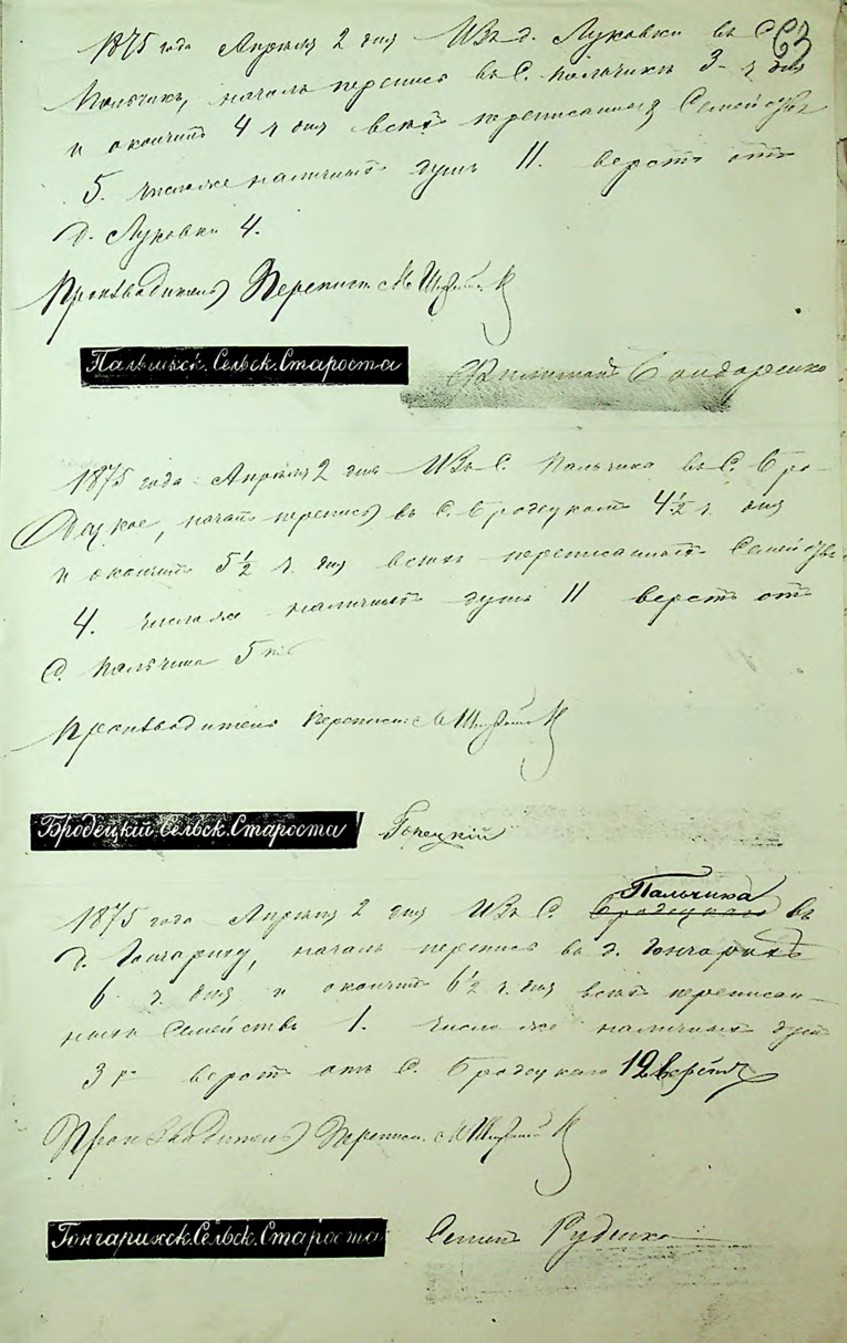 63
1875 года Апреля 2 дня Изъ д. Луковки въ С.
Пальчикъ, началъ перепись въ С. Пальчикъ 3 ч. дня
и окончилъ 4 ч. дня всехъ переписанныхъ Семействъ
5. число же наличныхъ душъ 11. верстъ отъ
д. Луковки 4.
Производитель Переписи М.
Пальчикск. Сельск. Староста Бондаренко
1875 года Апреля 2 дня Изъ С. Пальчика въ С. Бро-
децкое, началъ перепись въ С. Бродецкомъ 4½ ч. дня
и окончилъ 5½ ч. дня всехъ переписанныхъ Семействъ
4. число же наличныхъ душъ 11 верстъ отъ
С. Пальчика 5
Производитель Переписи М.
Бродецкій Сельск. Староста
Пальчика
1875 года Апреля 2 дня Изъ С. Бродецкаго въ
д. Гончариху, началъ перепись въ д. Гончарихъ
6 ч. дня и окончилъ 6½ ч. дня всехъ переписан-
ныхъ Семействъ 1. число же наличныхъ душъ
3 верстъ отъ С. Бродецкаго 12 верстъ
Производитель Переписи М.
Гончарихск. Сельск. Староста Семенъ Руденко